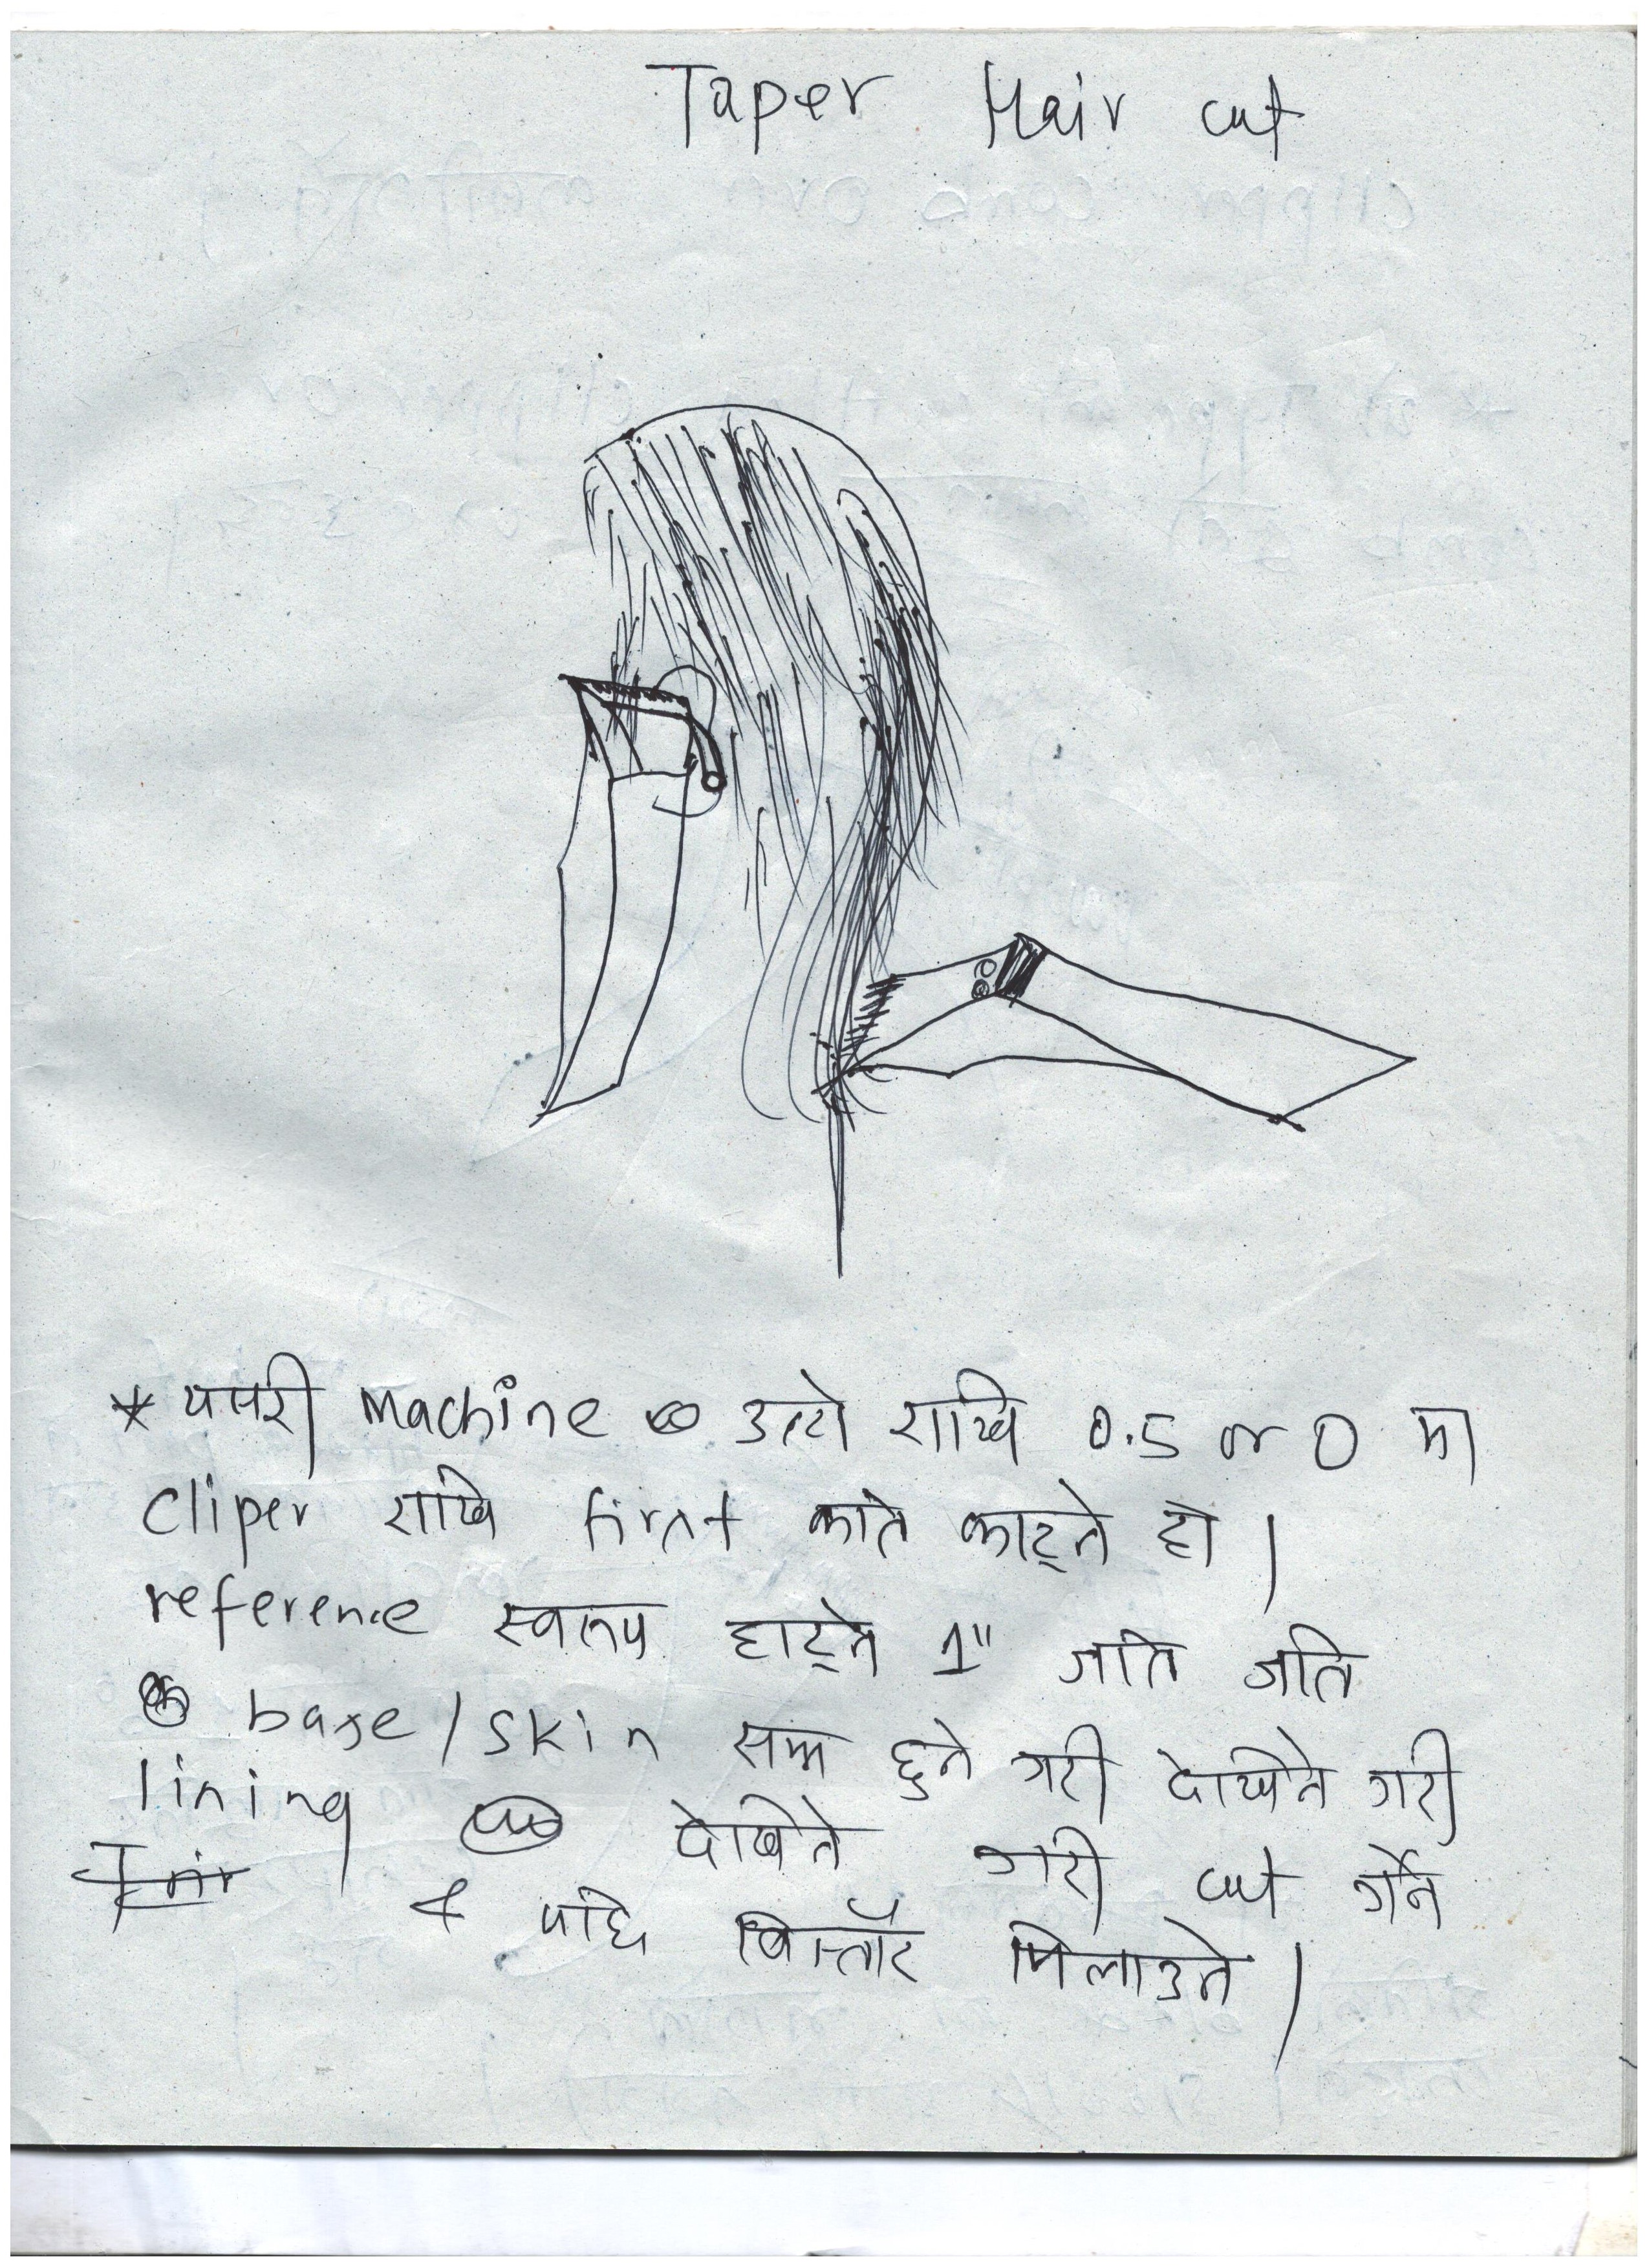 Taper Hair cut
* यसरी machine उल्टो राखि 0.5 or 0 मा
cliper राखि first काते काट्ने हो ।
reference स्वरूप हाट्ने 1" जति जति
base / skin सम्म छुने गरी देखिने गरी
lining देखिने गरी cut गर्ने
& पछि मिलाउने ।